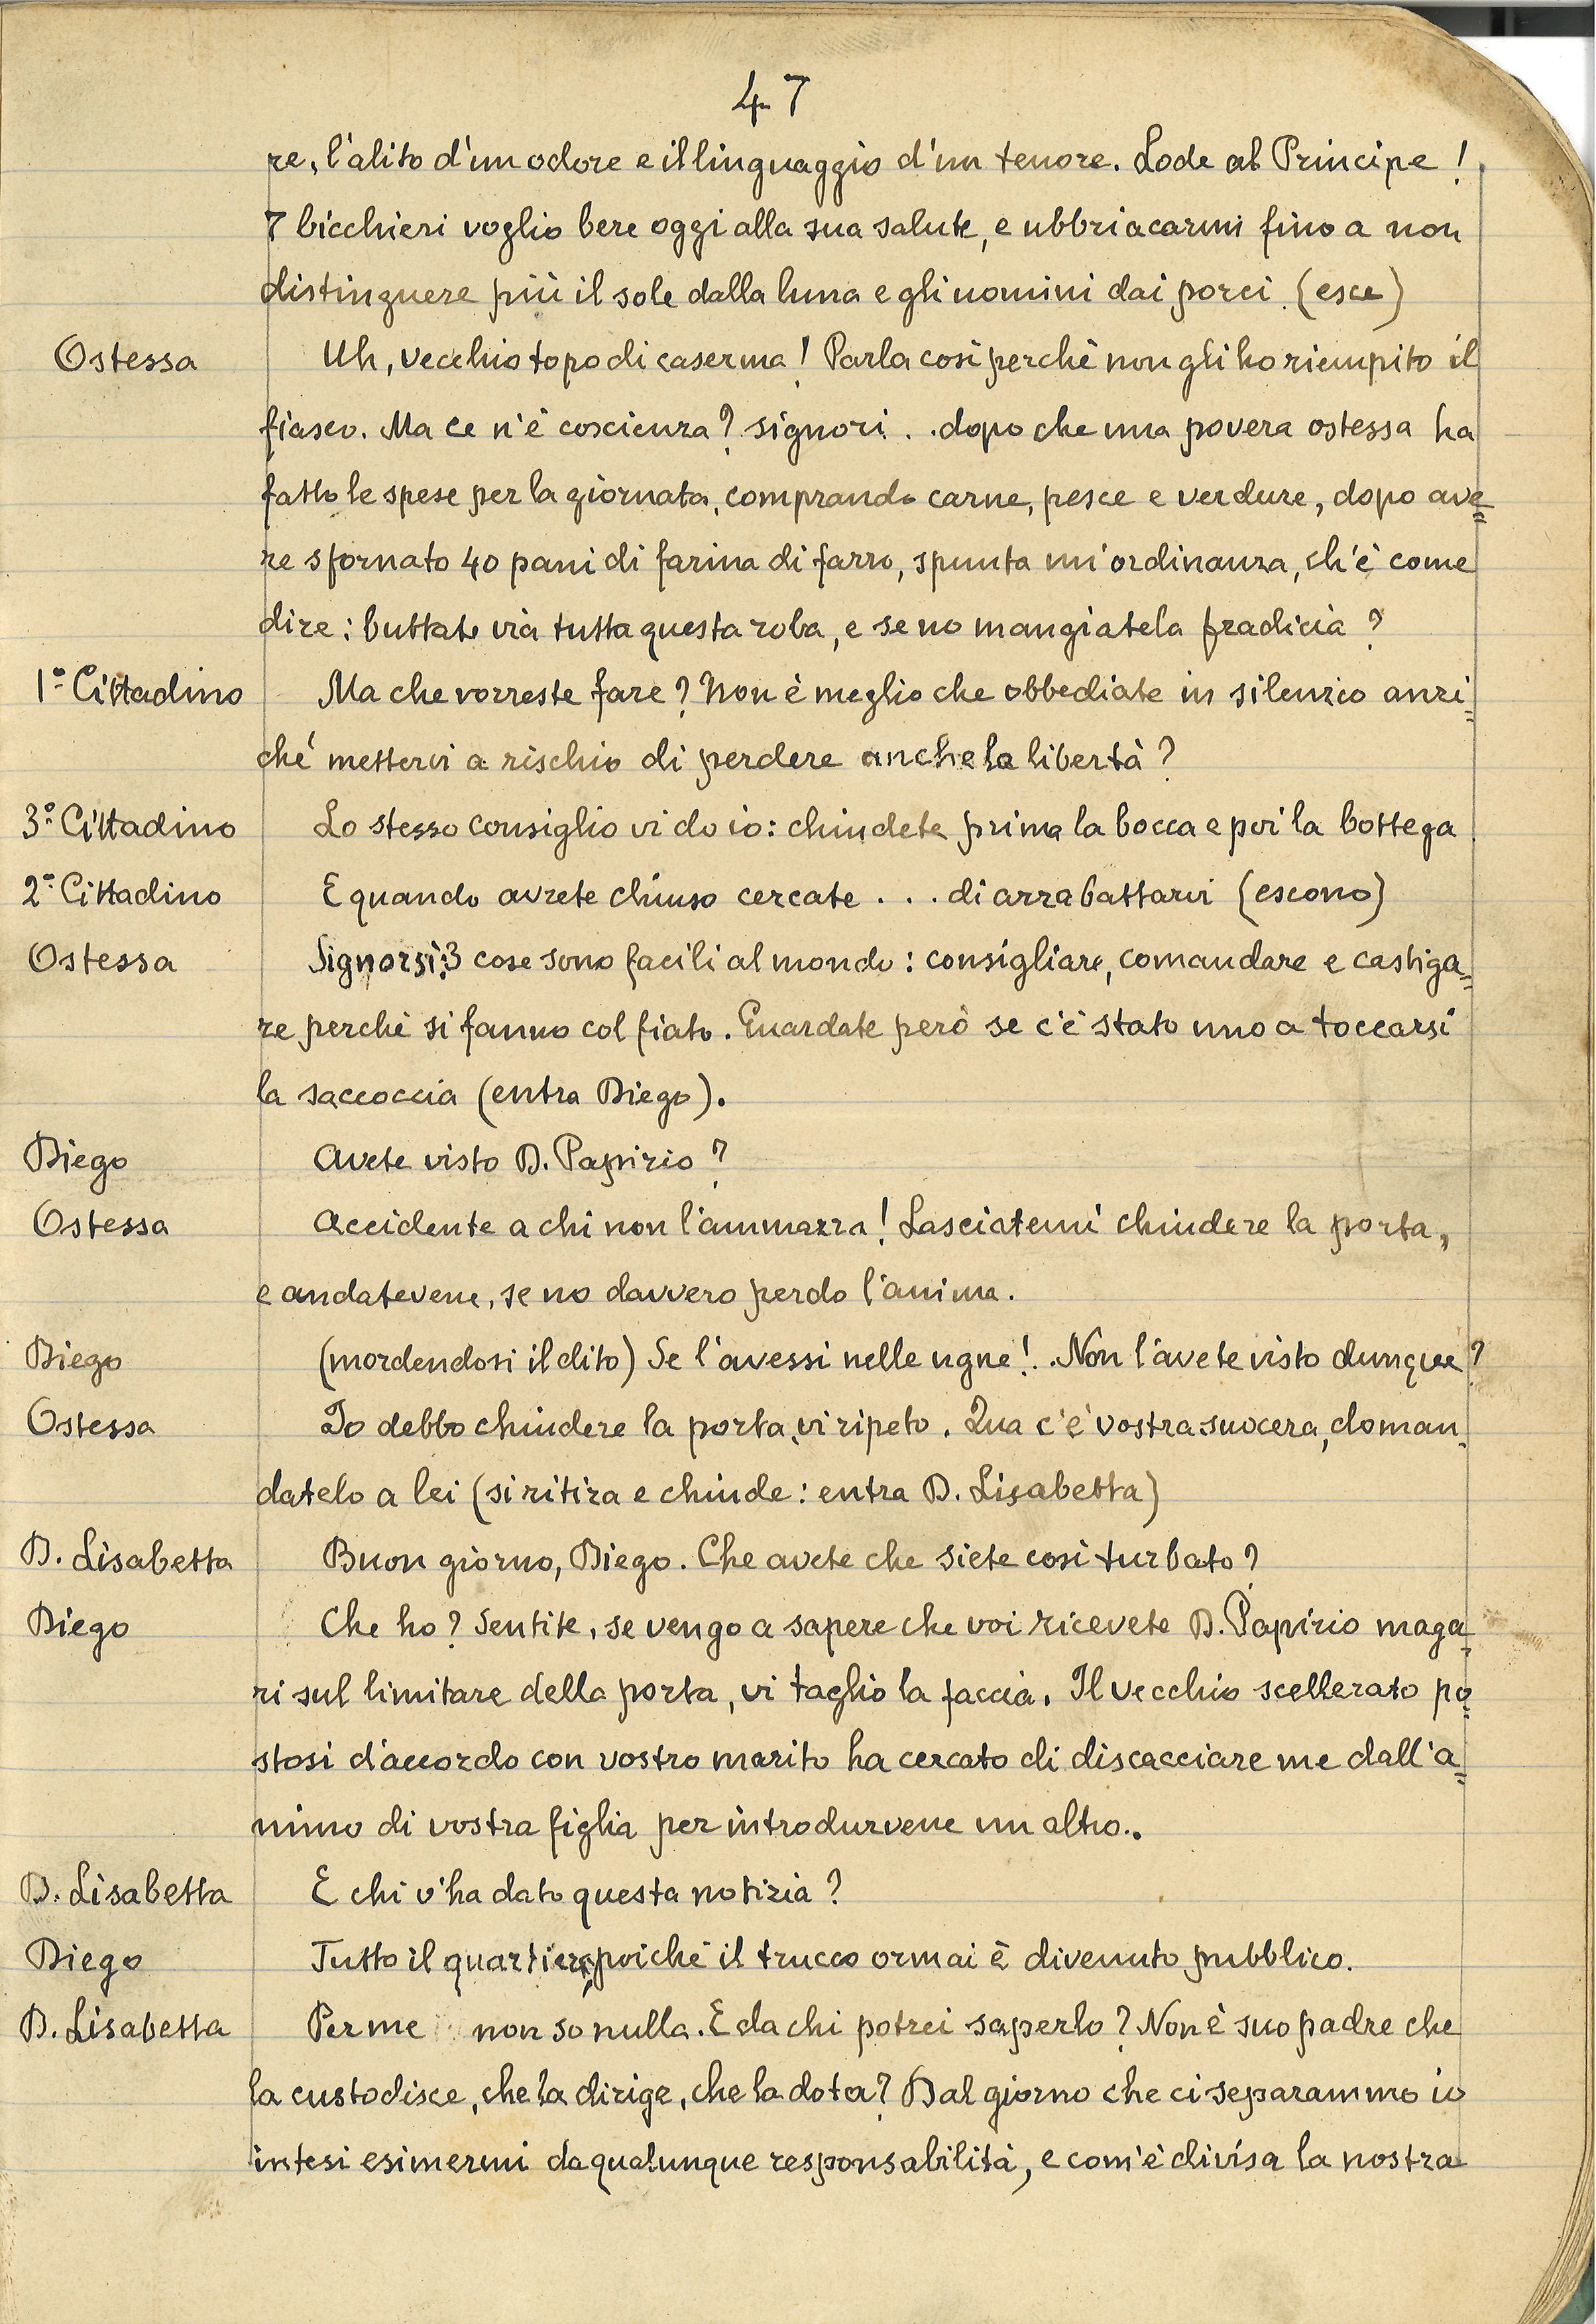 47
re, l'alito d'un odore e il linguaggio d'un tenore. Lode al Principe!
7 bicchieri voglio bere oggi alla sua salute, e ubbriacarmi fino a non
distinguere più il sole dalla luna e gli uomini dai porci. (esce)
Ostessa Uh, vecchio topo di caserma! Parla così perchè non gli ho riempito il
fiasco. Ma ce n'è coscienza? signori . . dopo che una povera ostessa ha
fatto le spese per la giornata, comprando carne, pesce e verdure, dopo ave=
re sfornato 40 pani di farina di farro, spunta un'ordinanza, ch'è come
dire: buttate via tutta questa roba, e se no mangiatela fradicia?
1º Cittadino Ma che vorreste fare? Non è meglio che obbediate in silenzio anzi=
ché mettervi a rischio di perdere anche la libertà?
3º Cittadino Lo stesso consiglio vi do io: chiudete prima la bocca e poi la bottega
2º Cittadino E quando avrete chiuso cercate . . . di arrabattarvi (escono)
Ostessa Signorsì: 3 cose sono facili al mondo: consigliare, comandare e castiga=
re perchè si fanno col fiato. Guardate però se c'è stato uno a toccarsi
la saccoccia (entra Diego).
Diego Avete visto D. Papirio?
Ostessa Accidente a chi non l'ammazza! Lasciatemi chiudere la porta,
e andatevene, se no davvero perdo l'anima.
Diego (mordendosi il dito) Se l'avessi nelle ugne! . Non l'avete visto dunque?
Ostessa Io debbo chiudere la porta, vi ripeto. Qua c'è vostra suocera, doman=
datelo a lei (si ritira e chiude: entra D. Lisabetta)
D. Lisabetta Buon giorno, Diego. Che avete che siete così turbato?
Diego Che ho? Sentite, se vengo a sapere che voi ricevete D. Papirio maga=
ri sul limitare della porta, vi taglio la faccia. Il vecchio scellerato po=
stosi d'accordo con vostro marito ha cercato di discacciare me dall'a=
nimo di vostra figlia per introdurvene un altro..
D. Lisabetta E chi v'ha dato questa notizia?
Diego Tutto il quartiere, poiché il trucco ormai è divenuto pubblico.
D. Lisabetta Per me non so nulla. E da chi potrei saperlo? Non è suo padre che
la custodisce, che la dirige, che la dota? Dal giorno che ci separammo io
intesi esimermi da qualunque responsabilità, e com'è divisa la nostra